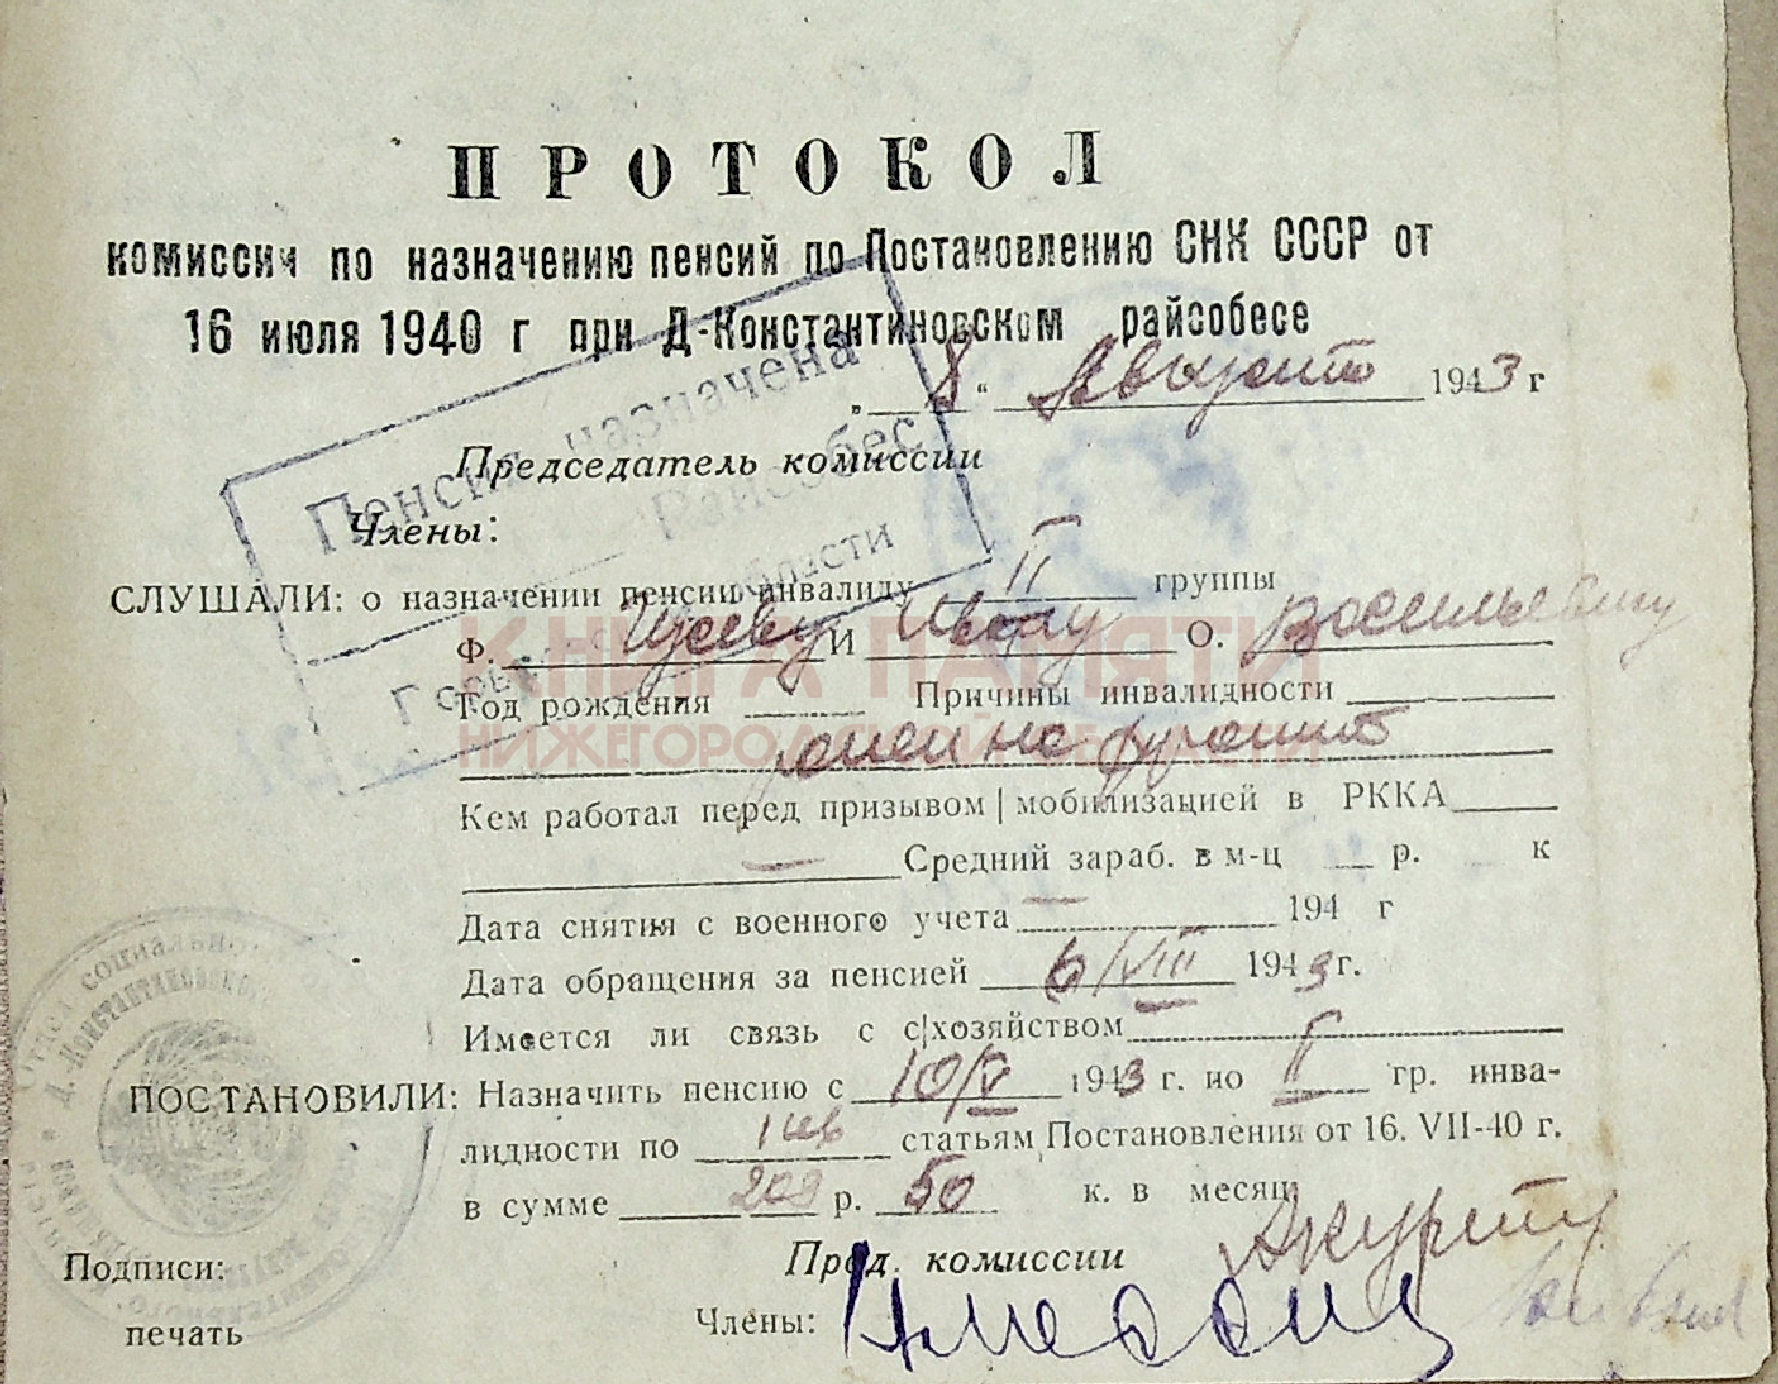 ПРОТОКОЛ
комиссии по назначению пенсий по Постановлению СНК СССР от
16 июля 1940 г при Д-Константиновском райсобесе
„ 8 " Августа 1943 г
Председатель комиссии
Члены:
Пенсия назначена
Райсобес
Горьк области
СЛУШАЛИ: о назначении пенсии инвалиду II группы
Ф. Гусеву И Ивану О. Васильевичу
КНИГА ПАМЯТИ
Год рождения Причины инвалидности
НИЖЕГОРОДСКОЙ ОБЛАСТИ
ранен на фронте
Кем работал перед призывом | мобилизацией в РККА
— Средний зараб. в м-ц р. к
Дата снятия с военного учета — 194 г
Дата обращения за пенсией 6/VIII 1943 г.
Имеется ли связь с с|хозяйством
ПОСТАНОВИЛИ: Назначить пенсию с 10/V 1943 г. по II гр. инва-
лидности по статьям Постановления от 16. VII-40 г.
в сумме 209 р. 50 к. в месяц
Подписи: Пред. комиссии
Члены:
печать